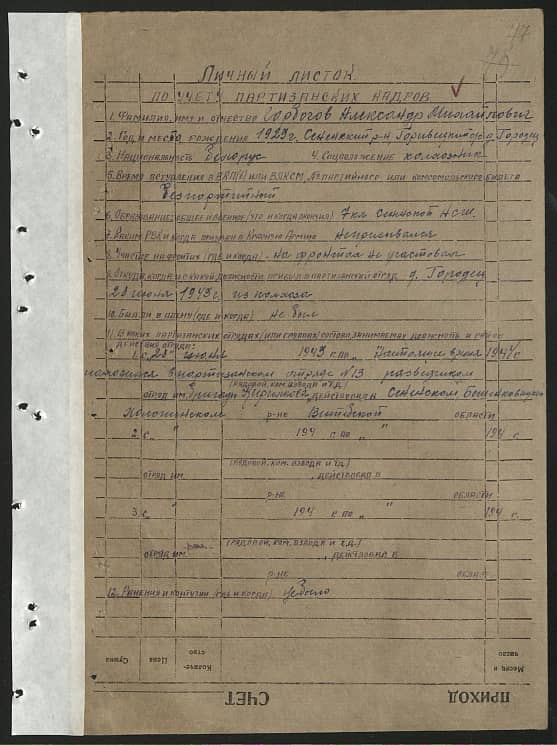 77
Личный листок
по учету партизанских кадров
1. Фамилия, имя и отчество Александр Михайлович
2. Год и место рождения 1929г. Сенненский р-н д. Городец
3. Национальность Белорус 4. Соцположение колхозник
5. Время вступления в ВКП(б) или ВЛКСМ, № партийного или комсомольского билета
Безпартийный
6. Образование общее и военное (что и когда окончил) 7 кл. Сенненской НСШ.
7. Каким РВК и когда призван в Красную Армию Непризывался
8. Участие на фронтах (где и когда). на фронтах не участвовал
9. Откуда, когда и с какой должности прибыл в партизанский отряд д. Городец
28 июня 1943 г. из колхоза
10. Был ли в плену (где и когда) не был
11. В каких партизанских отрядах (или группах) состоял, занимаемая должность и
действия отряда:
1. с "28" июня 1943 г. по " настоящее время 194 г.
находился в партизанском отряде №13 разведчиком
(рядовой, ком. взвода и т.д.)
отряд им. действовал в Сенненском,
р-не Витебской области
2. с " 194 г. по " " 194 г.
(рядовой, ком. взвода и т.д.)
отряд им. , действовал в
р-не области
3. с " 194 г. по " " 194 г.
(рядовой, ком. взвода и т.д.)
отряд им. , действовал в
р-не област
12. Ранения и контузии (где и когда) небыло
Месяц и число
Количество
Цена
Сумма
ПРИХОД
СЧЕТ